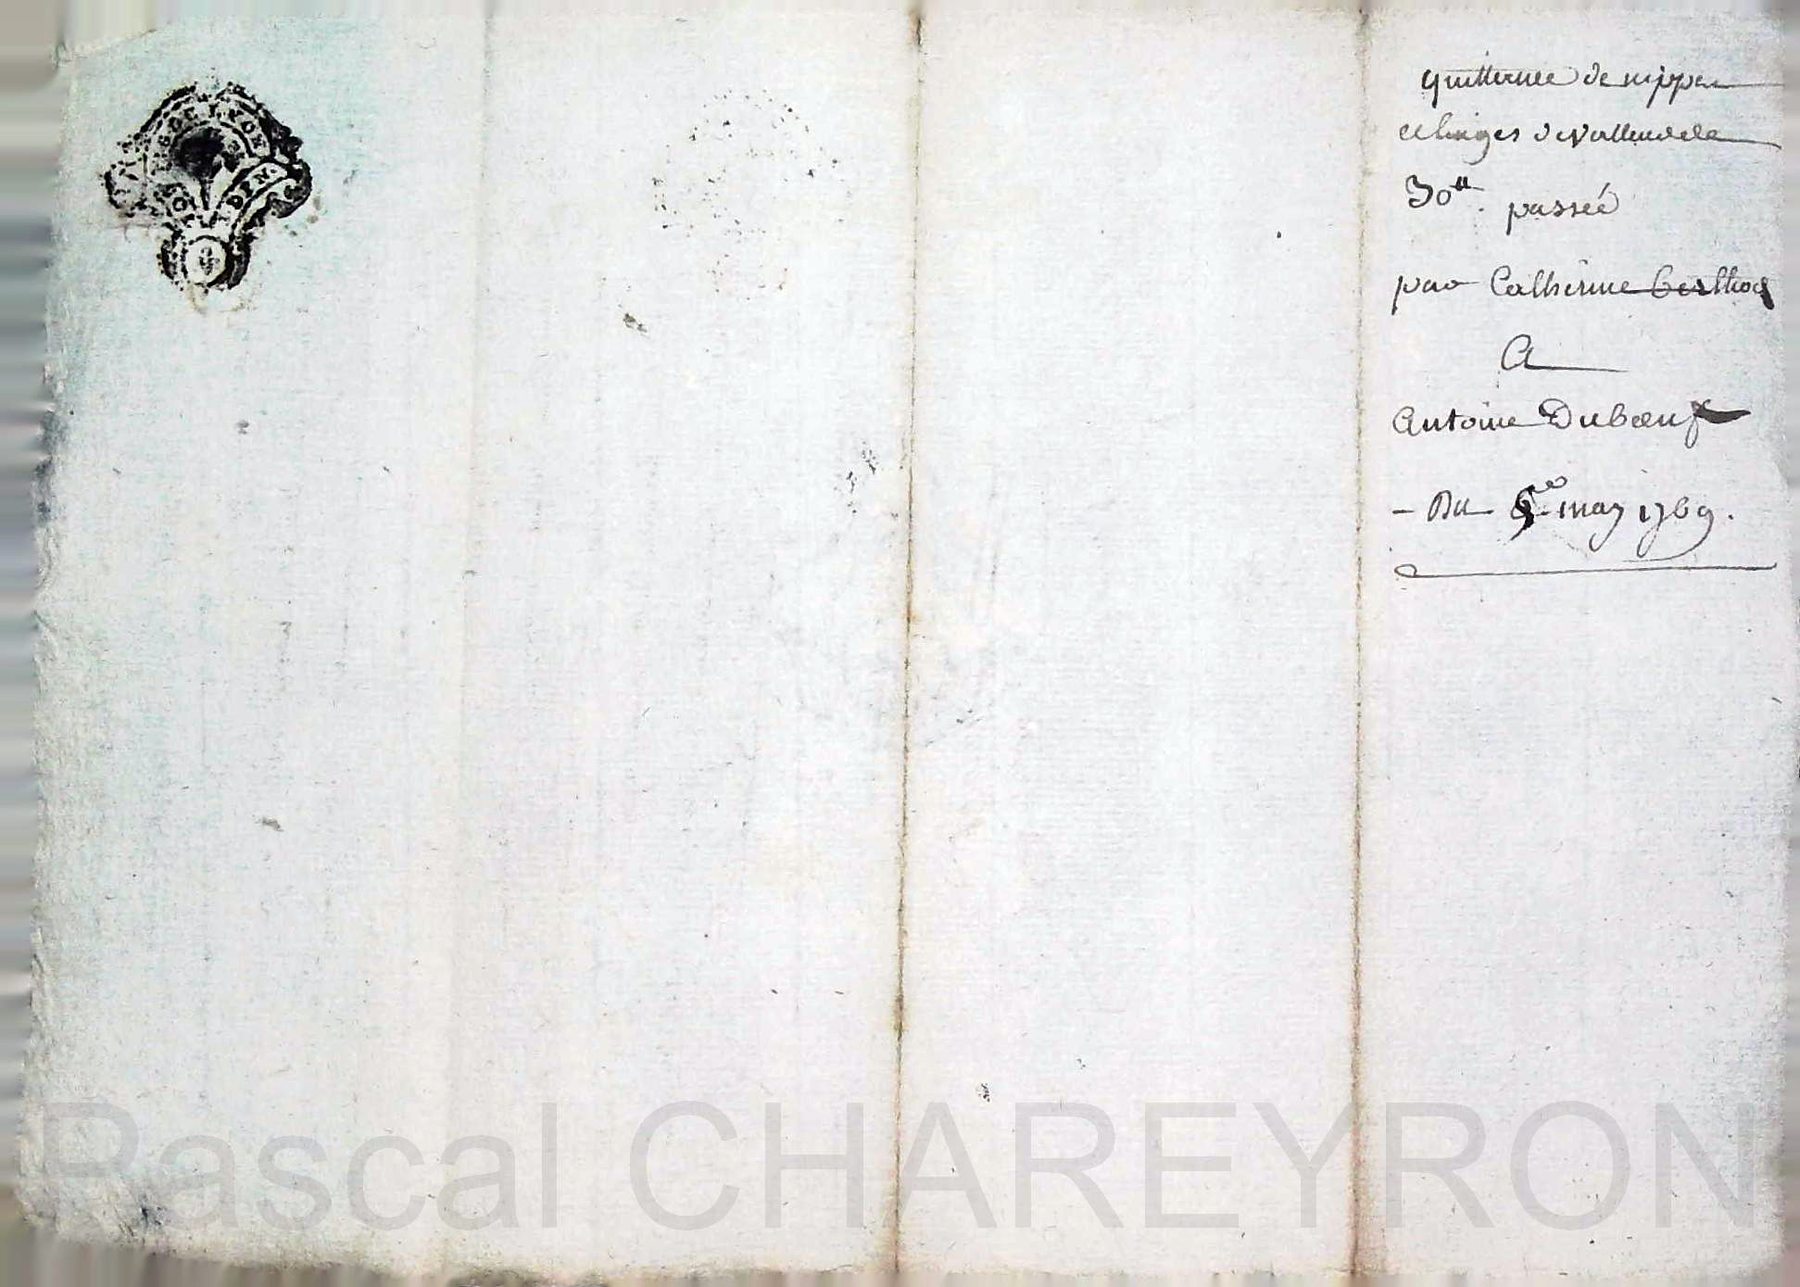 quittance de nippes
et linges de valleur de la
30ᵗᵗ. passée
par Catherine Berthod
A
Antoine Duboeuf
- Du may 1769.
GEN. DE LYON
Pascal CHAREYRON